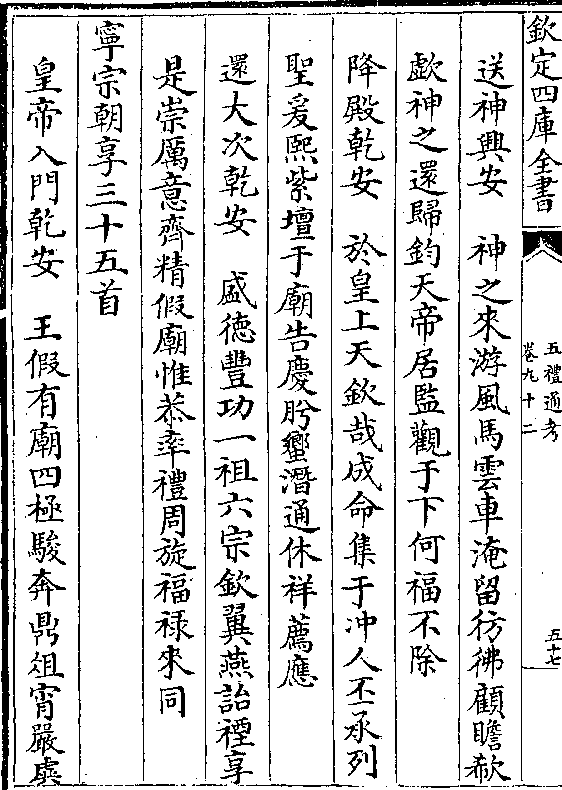 欽定四庫全書
五禮通考
卷九十二
五十七
送神興安　神之來游風馬雲車淹留彷彿顧瞻欷
歔神之還歸鈞天帝居監觀于下何福不除
降殿乾安　於皇上天欽哉成命集于沖人丕承列
聖爰熙紫壇于廟告慶肸蠁潛通休祥薦應
還大次乾安　盛德豐功一祖六宗欽翼燕詒禋享
是崇厲意齊精假廟惟恭率禮周旋福禄來同
寧宗朝享三十五首
皇帝入門乾安　王假有廟四極駿奔鼎俎宵嚴虡